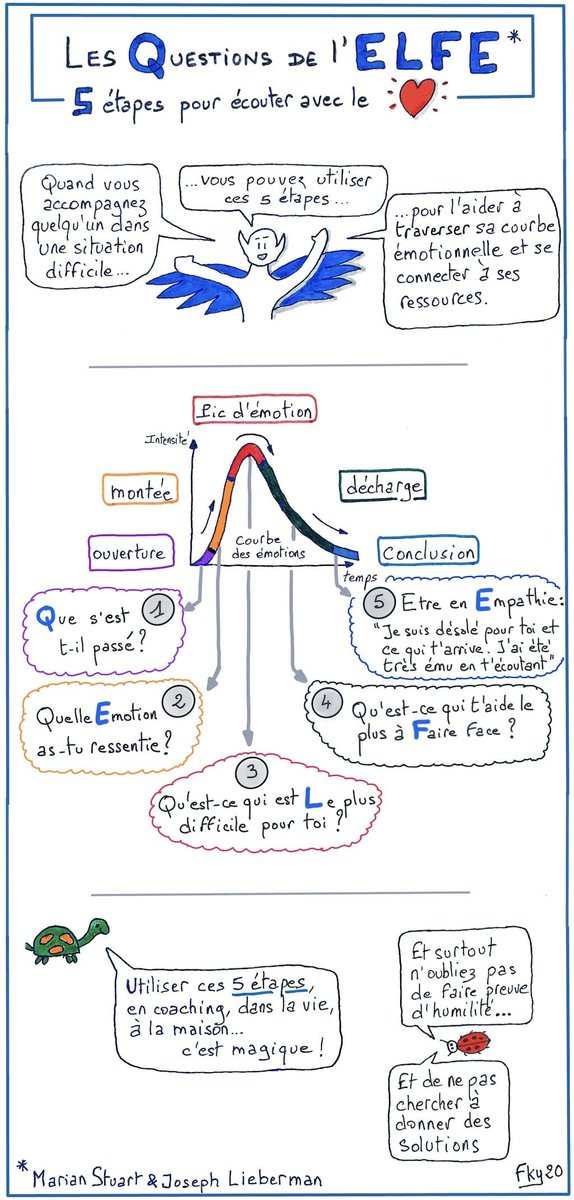 Les Questions de l'ELFE*
5 étapes pour écouter avec le
Quand vous
accompagnez
quelqu'un dans
une situation
difficile...
...vous pouvez utiliser
ces 5 étapes...
...pour l'aider à
traverser sa courbe
émotionnelle et se
connecter à ses
ressources.
Pic d'émotion
Intensité
montée
décharge
ouverture
Courbe
des émotions
Conclusion
temps
1
Que s'est
t-il passé?
5 Etre en Empathie:
"Je suis désolé pour toi et
ce qui t'arrive. J'ai été
très ému en t'écoutant"
2
Quelle Emotion
as-tu ressentie?
4 Qu'est-ce qui t'aide le
plus à Faire Face ?
3
Qu'est-ce qui est Le plus
difficile pour toi ?
Utiliser ces 5 étapes,
en coaching, dans la vie,
à la maison...
c'est magique !
Et surtout
n'oubliez pas
de faire preuve
d'humilité...
Et de ne pas
chercher à
donner des
solutions
* Marian Stuart & Joseph Lieberman
Fky20